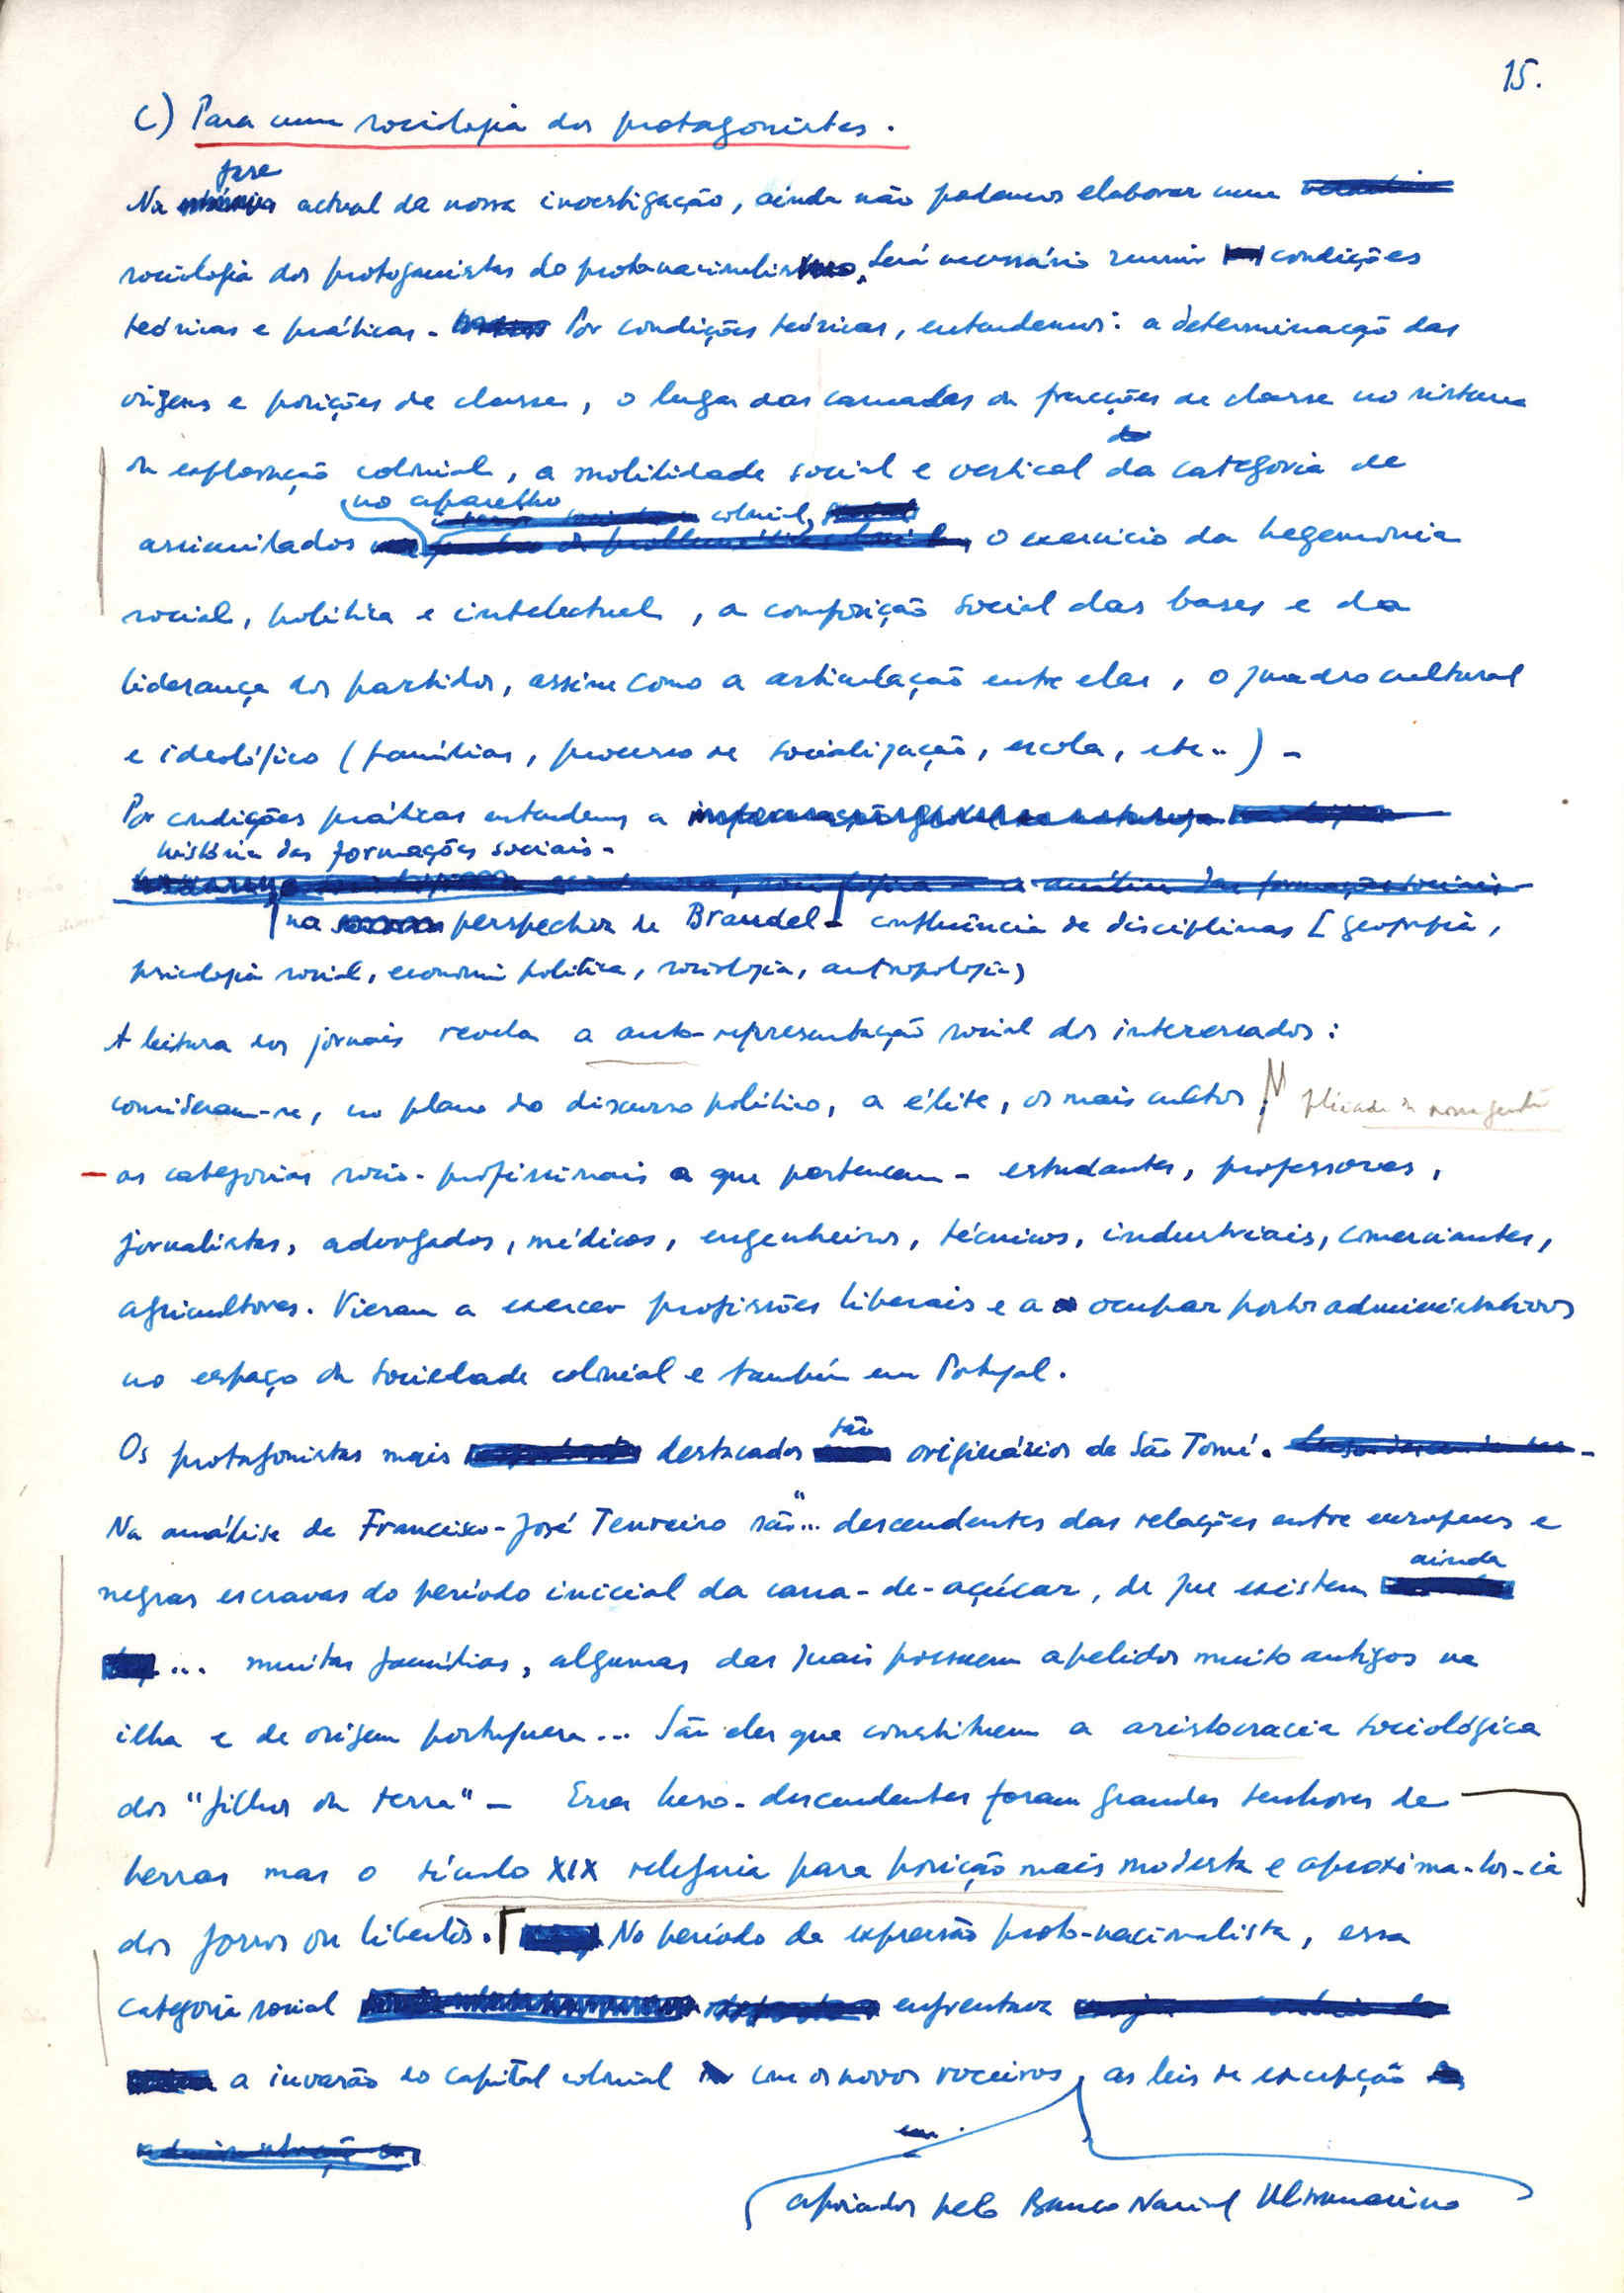 15.
C) Para uma sociologia dos protagonistas.
fase
Na actual da nossa investigação, ainda não podemos elaborar uma
sociologia dos protagonistas do protonacionalismo. Será necessário reunir condições
teóricas e práticas. Por condições teóricas, entendemos: a determinação das
origens e posições de classe, o lugar das camadas ou fracções de classe no sistema
da exploração colonial, a mobilidade social e vertical da categoria de
no aparelho colonial,
assimilados o exercício da hegemonia
social, política e intelectual, a composição social das bases e da
liderança dos partidos, assim como a articulação entre elas, o quadro cultural
e ideológico (famílias, processo de socialização, escola, etc..) -
Por condições práticas entendemos a
história das formações sociais -
na perspectiva de Braudel - confluência de disciplinas [geografia,
psicologia social, economia política, sociologia, antropologia)
A leitura dos jornais revela a auto-representação social dos interessados:
consideram-se, no plano do discurso político, a élite, os mais cultos
- as categorias socio-profissionais a que pertencem - estudantes, professores,
jornalistas, advogados, médicos, engenheiros, técnicos, industriais, comerciantes,
agricultores. Vieram a exercer profissões liberais e a ocupar postos administrativos
no espaço da sociedade colonial e também em Portugal.
são
Os protagonistas mais destacados originários de São Tomé.
Na análise de Francisco-José Tenreiro são "... descendentes das relações entre europeus e
ainda
negras escravas do período inicial da cana-de-açúcar, de que existem
... muitas famílias, algumas das quais possuem apelidos muito antigos na
ilha e de origem portuguesa... São eles que constituem a aristocracia sociológica
dos "filhos da terra" - Esses luso-descendentes foram grandes senhores de
terras mas o século XIX relegaria para posição mais modesta e aproxima-los-ia
dos forros ou libertos. No período da expressão proto-nacionalista, essa
categoria social enfrentava
a invasão do capital colonial com os novos roceiros, as leis de excepção
apoiados pelo Banco Nacional Ultramarino